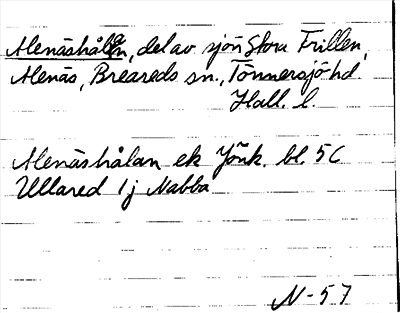 Alenäshålan, del av sjön Stora Frillen,
Alenäs, Breareds sn., Tönnersjö hd
Hall. l.
Alenäshålan ek Jönk. bl. 5C
Ullared 1j Nabba
N-57